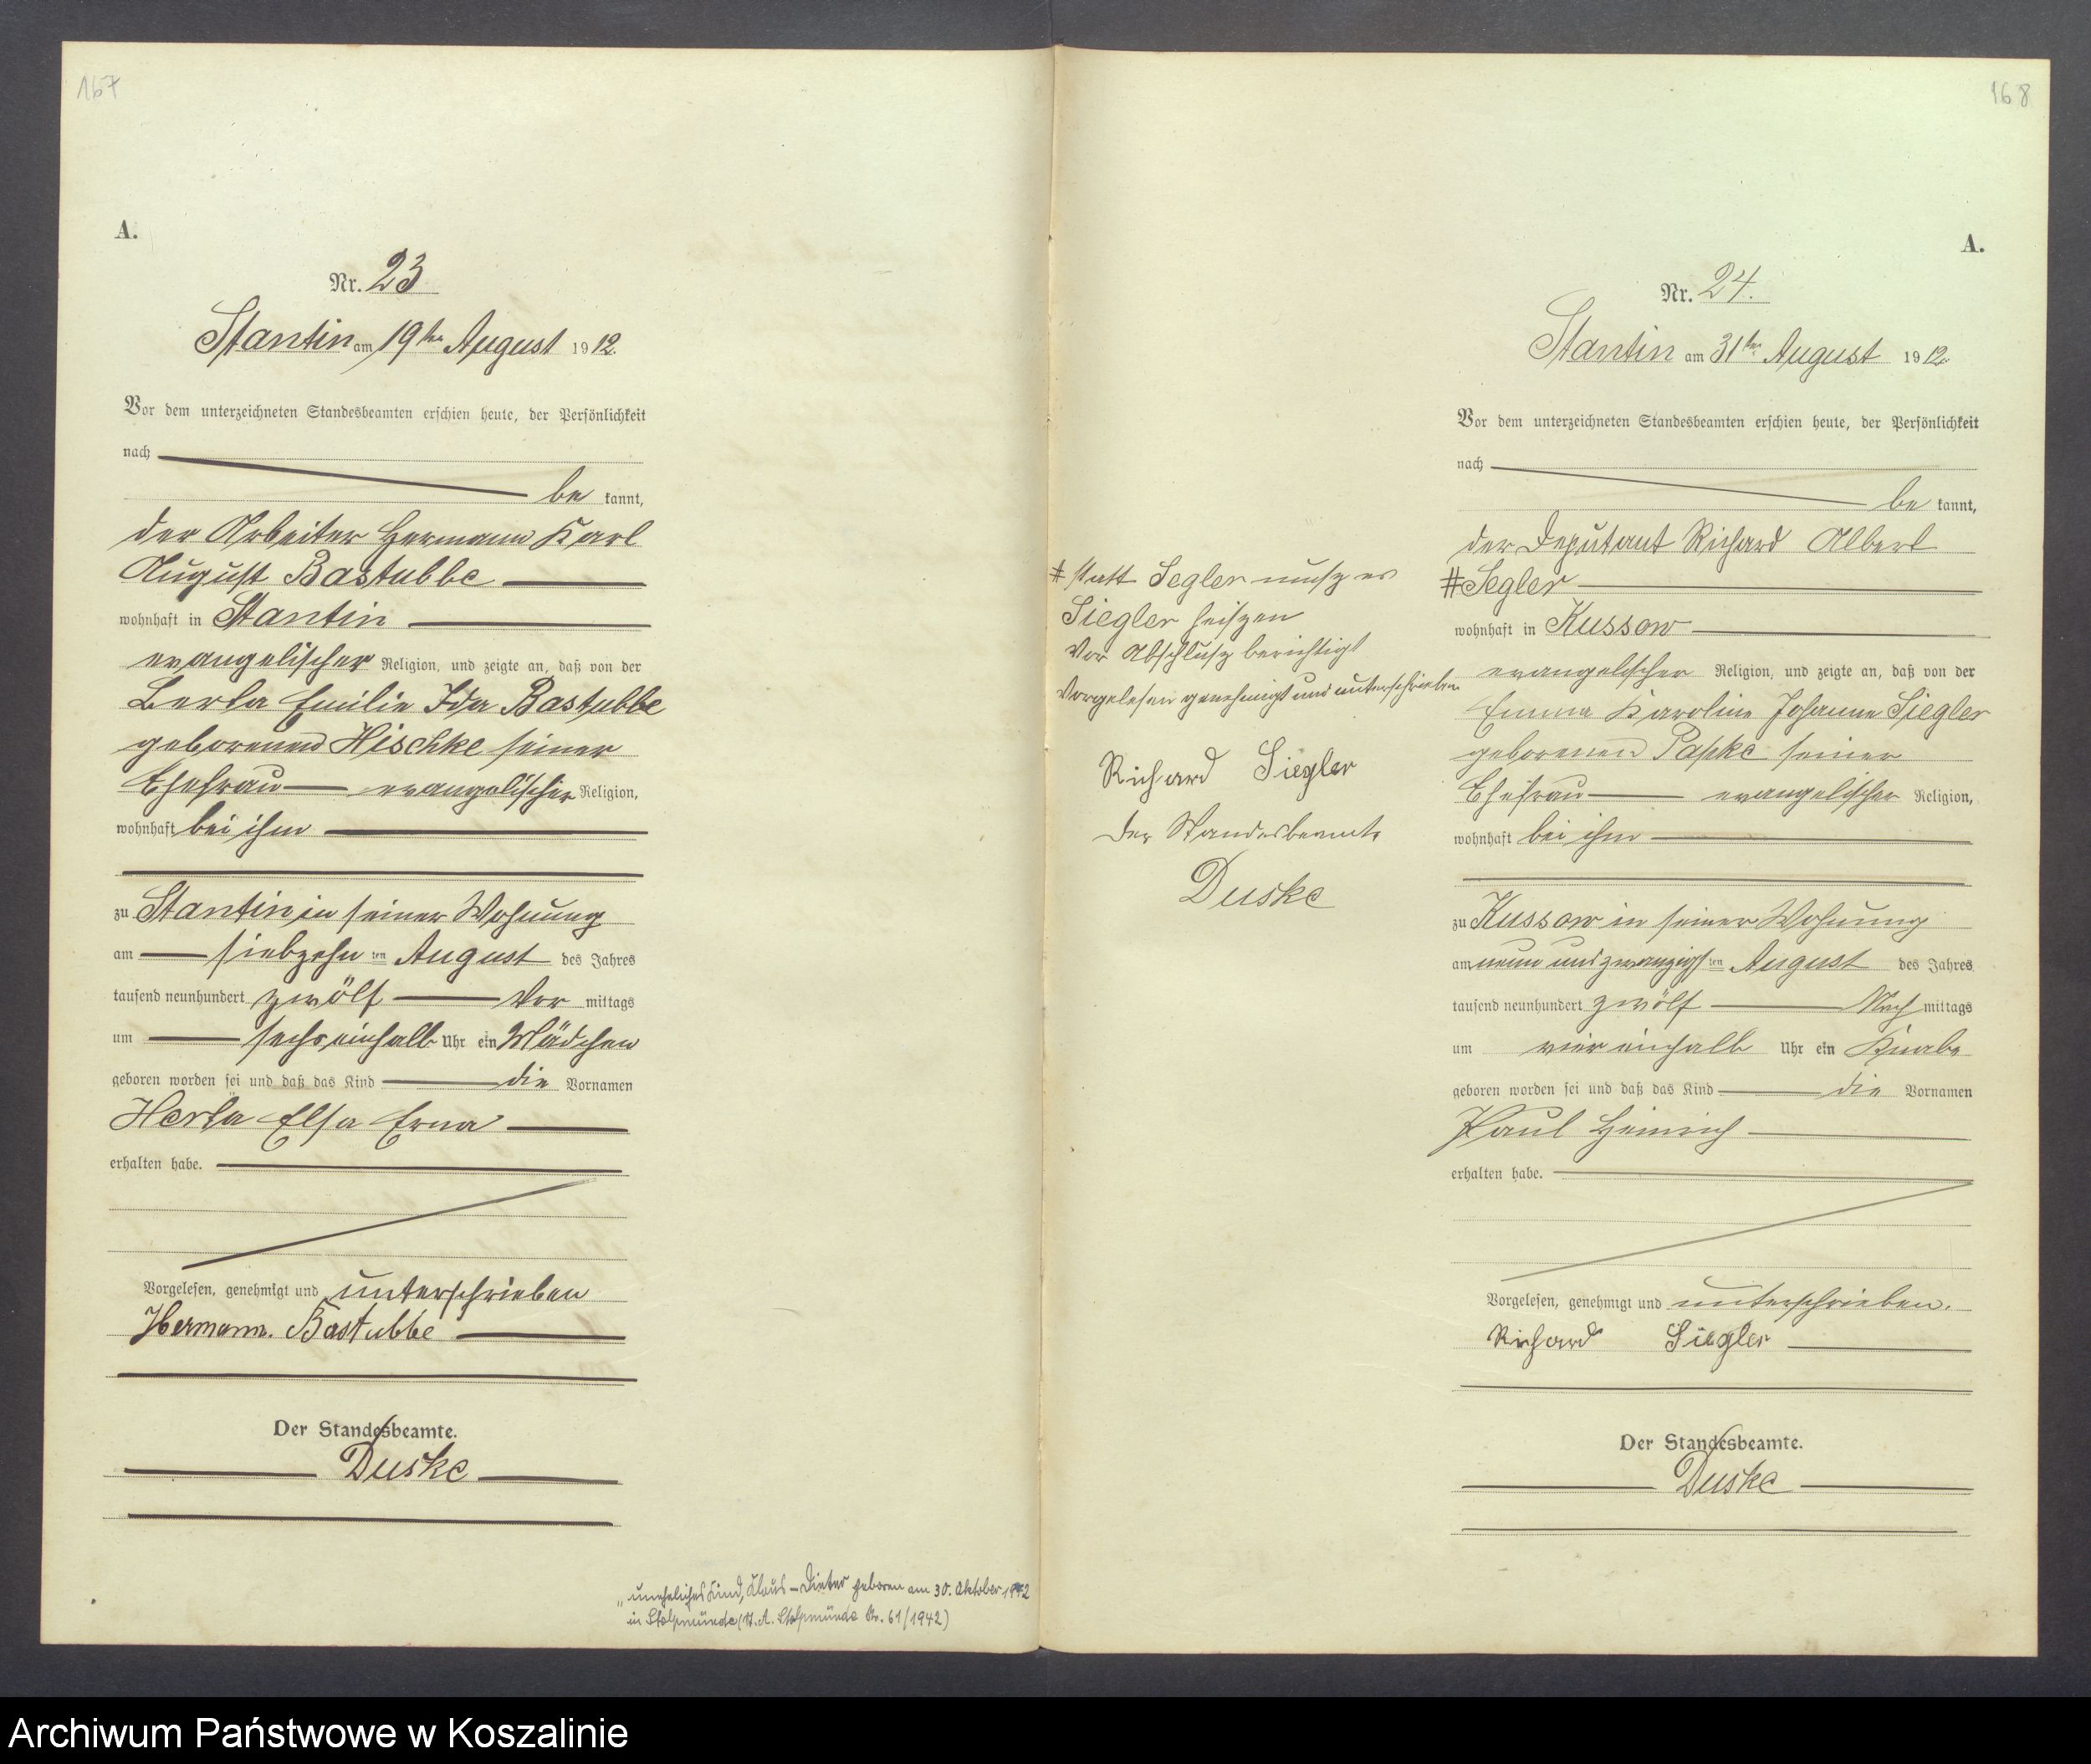 167
A.
Nr. 23
Stantin am 19ten August 1912.
Vor dem unterzeichneten Standesbeamten erschien heute, der Persönlichkeit
nach
be kannt,
der Arbeiter Hermann Karl
August Bastubbe
wohnhaft in Stantin
evangelischer Religion, und zeigte an, daß von der
Berta Emilie Ida Bastubbe
geborenen Hischke seiner
Ehefrau evangelischer Religion,
wohnhaft bei ihm
zu Stantin in seiner Wohnung
am siebzehn ten August des Jahres
tausend neunhundert zwölf Vor mittags
um sechseinhalb Uhr ein Mädchen
geboren worden sei und daß das Kind die Vornamen
Herta Elsa Erna
erhalten habe.
Vorgelesen, genehmigt und unterschrieben
Hermann. Bastubbe
Der Standesbeamte.
Duske
„uneheliches Kind, Klaus-Dieter geboren am 30. Oktober 1942
in Stolpmünde (St. A. Stolpmünde Nr. 61/1942)
168
A.
Nr. 24.
Stantin am 31ten August 1912.
Vor dem unterzeichneten Standesbeamten erschien heute, der Persönlichkeit
nach
be kannt,
der Deputant Richard Albert
# Segler
wohnhaft in Kussow
evangelischer Religion, und zeigte an, daß von der
Emma Karoline Johanne Siegler
geborenen Papke seiner
Ehefrau evangelischer Religion,
wohnhaft bei ihm
zu Kussow in seiner Wohnung
am neunundzwanzigs ten August des Jahres
tausend neunhundert zwölf Nach mittags
um viereinhalb Uhr ein Knabe
geboren worden sei und daß das Kind die Vornamen
Paul Heinrich
erhalten habe.
Vorgelesen, genehmigt und unterschrieben.
Richard Siegler
Der Standesbeamte.
Duske
# statt Segler muß es
Siegler heißen
Vor Abschluß berichtigt
Vorgelesen genehmigt und unterschrieben
Richard Siegler
Der Standesbeamte
Duske
Archiwum Państwowe w Koszalinie